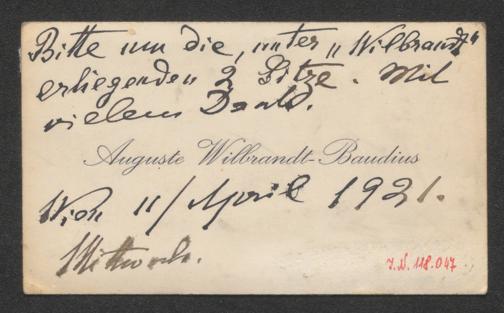 Bitte um die, unter „Wilbrandt“
erliegenden 2 Sitze. Mit
vielem Dank.
Auguste Wilbrandt-Baudius
Wien 11/April 1921.
Mittwoch.
I.N. 118.047